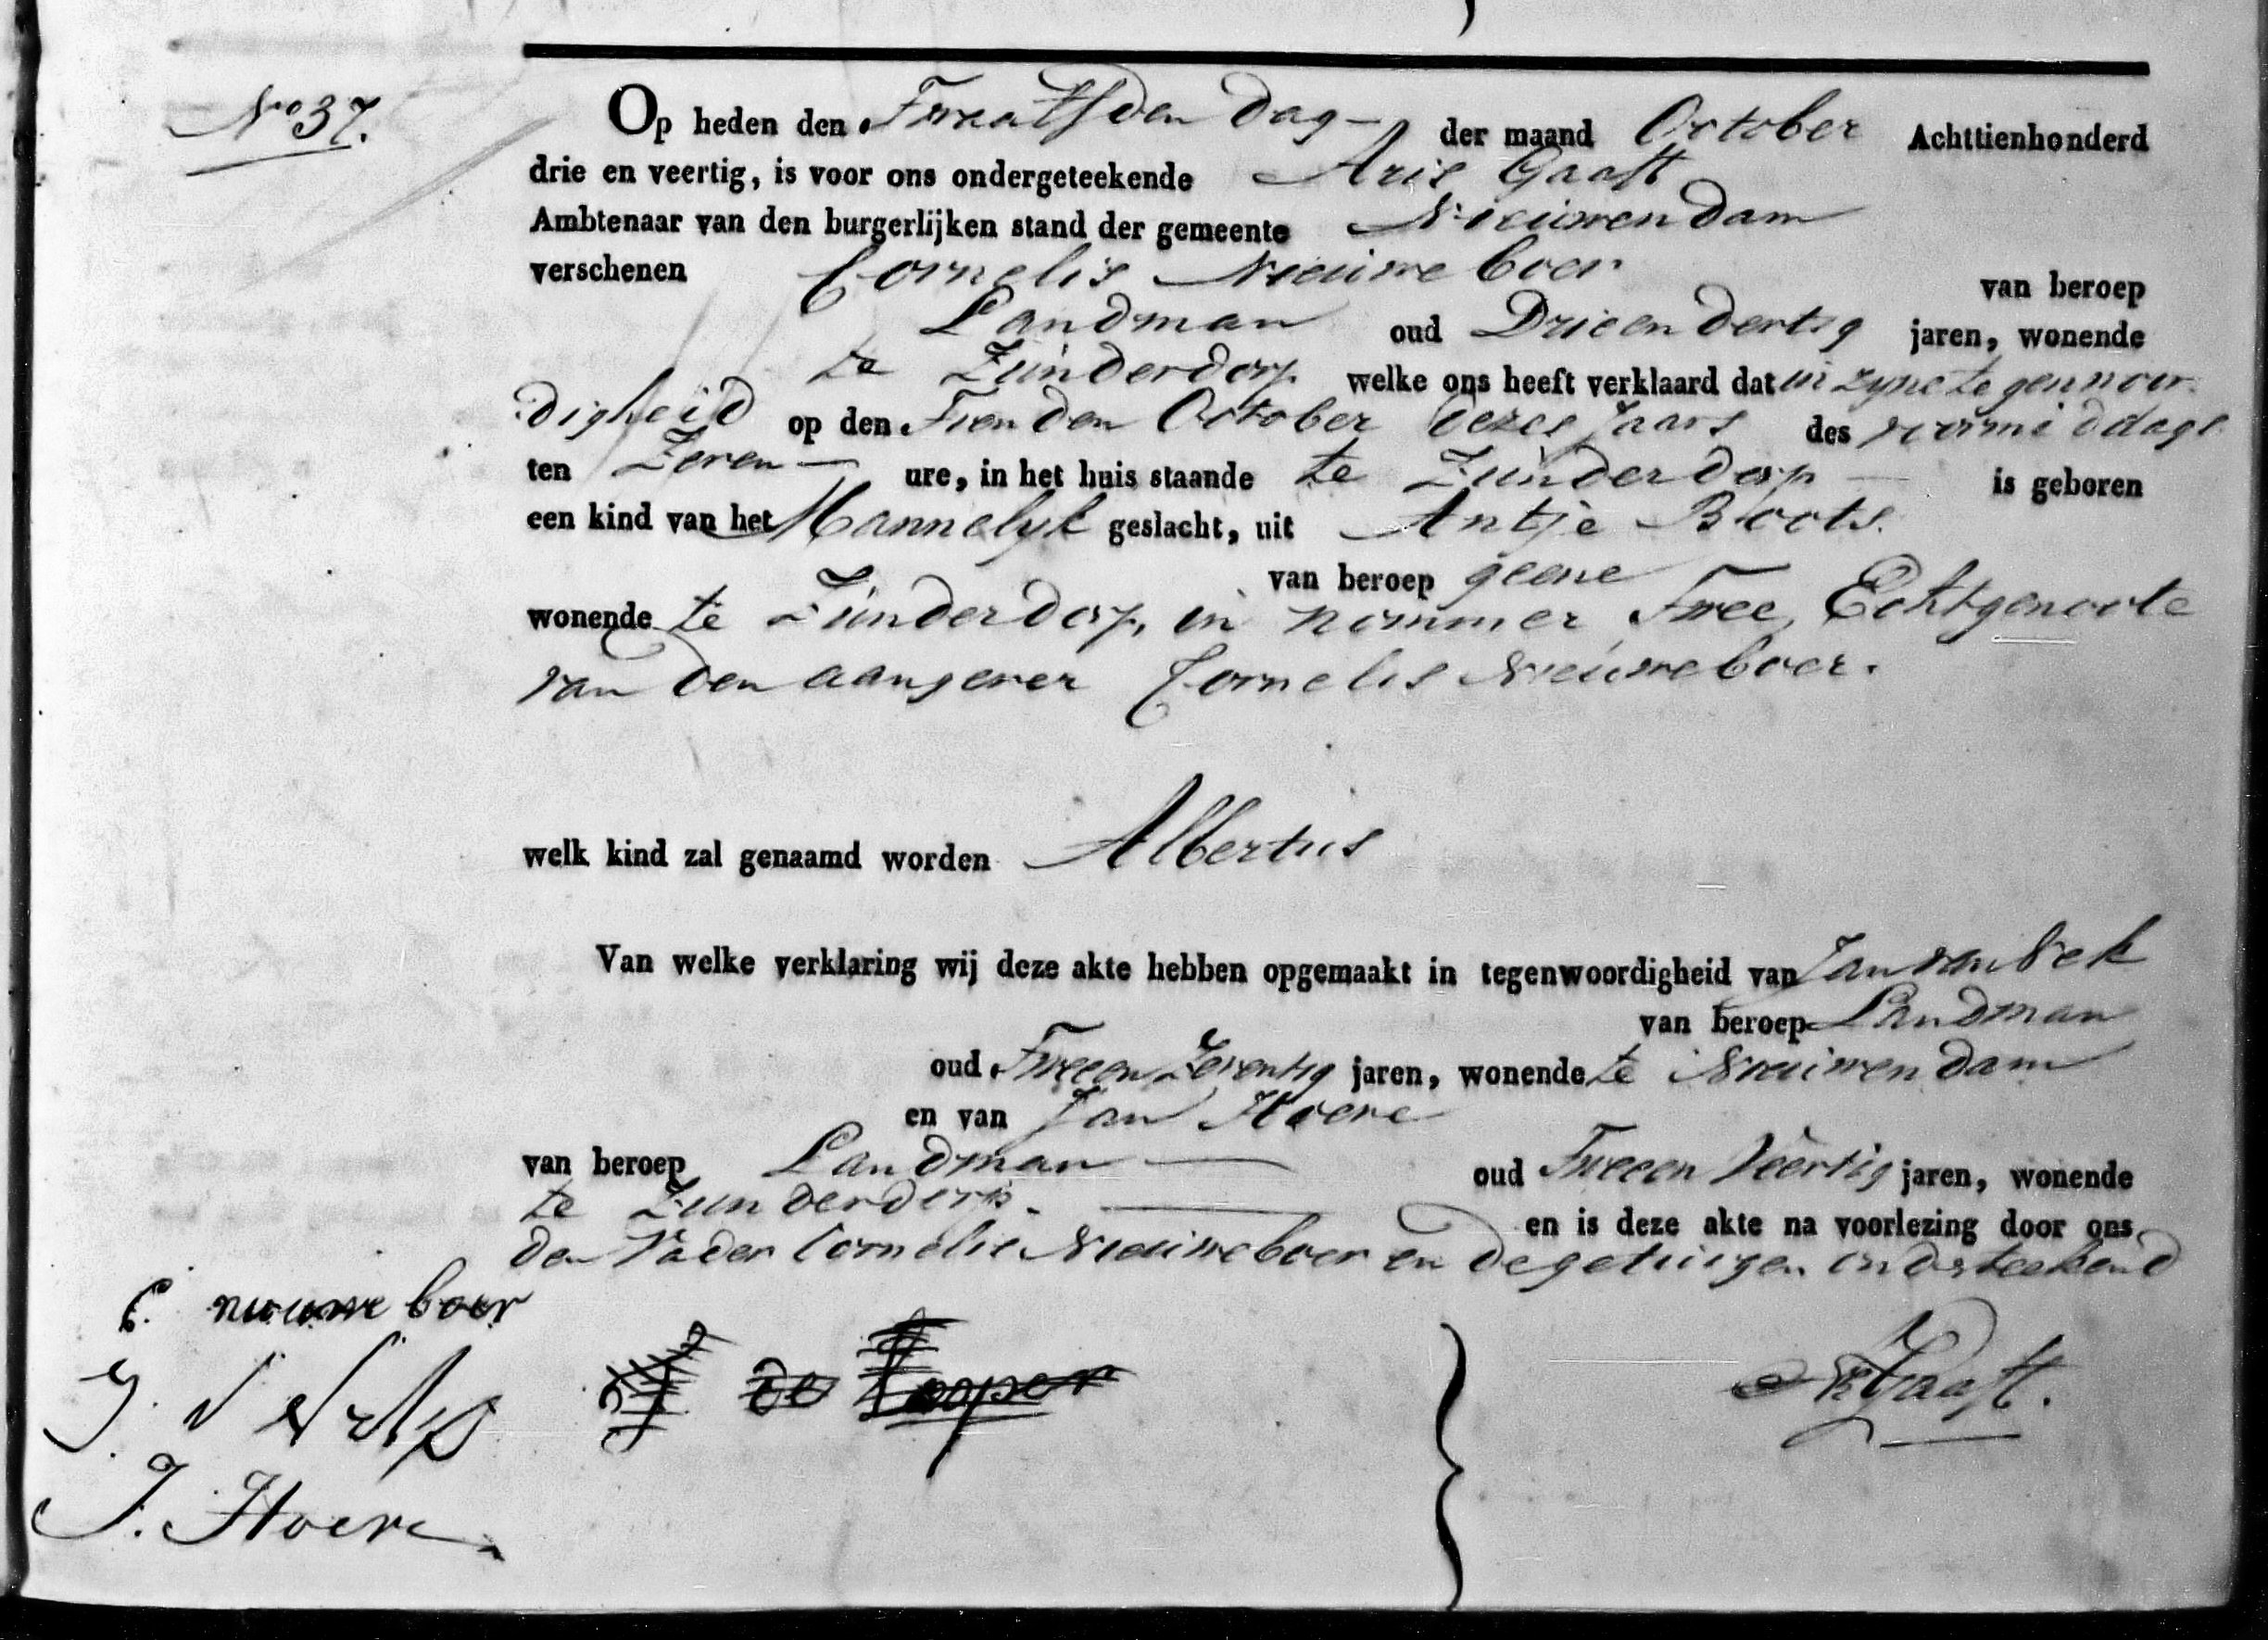 No 37.
Op heden den Twaalfden dag der maand October Achttienhonderd
drie en veertig, is voor ons ondergeteekende Arie Gaaft
Ambtenaar van den burgerlijken stand der gemeente Nieuwendam
verschenen Cornelis Nieuweboer van beroep
Landman oud Drieendertig jaren, wonende
te Zunderdorp welke ons heeft verklaard dat in zyne tegenwoor
digheid op den Tienden October dezes Jaars des voormiddags
ten Zeven ure, in het huis staande te Zunderdorp is geboren
een kind van het Mannelyk geslacht, uit Antje Bloots.
van beroep geene
wonende te Zunderdorp, in nommer Twee, Echtgenoote
van den aangever Cornelis Nieuweboer.
welk kind zal genaamd worden Albertus
Van welke verklaring wij deze akte hebben opgemaakt in tegenwoordigheid van Jan van
van beroep Landman
oud Tweeen Zeventig jaren, wonende te Nieuwendam
en van Jan Hoeve
van beroep Landman oud Tweeen Veertig jaren, wonende
te Zunderdorp. en is deze akte na voorlezing door ons,
den Vader Cornelis Nieuweboer en de getuigen onderteekend
C. nieuwe boer
de Looper
J. Hoeve
A Gaaft.